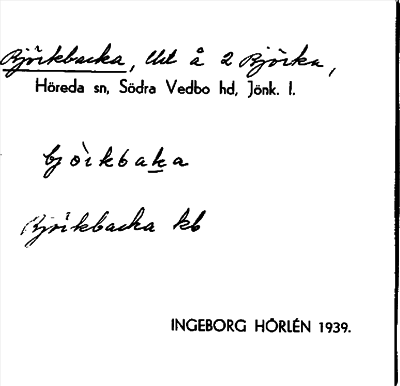 Björkbacka, litt å 2 Björka,
Höreda sn, Södra Vedbo hd, Jönk. l.
bjö̀rkbaka
Björkbacka kb
INGEBORG HÖRLÉN 1939.